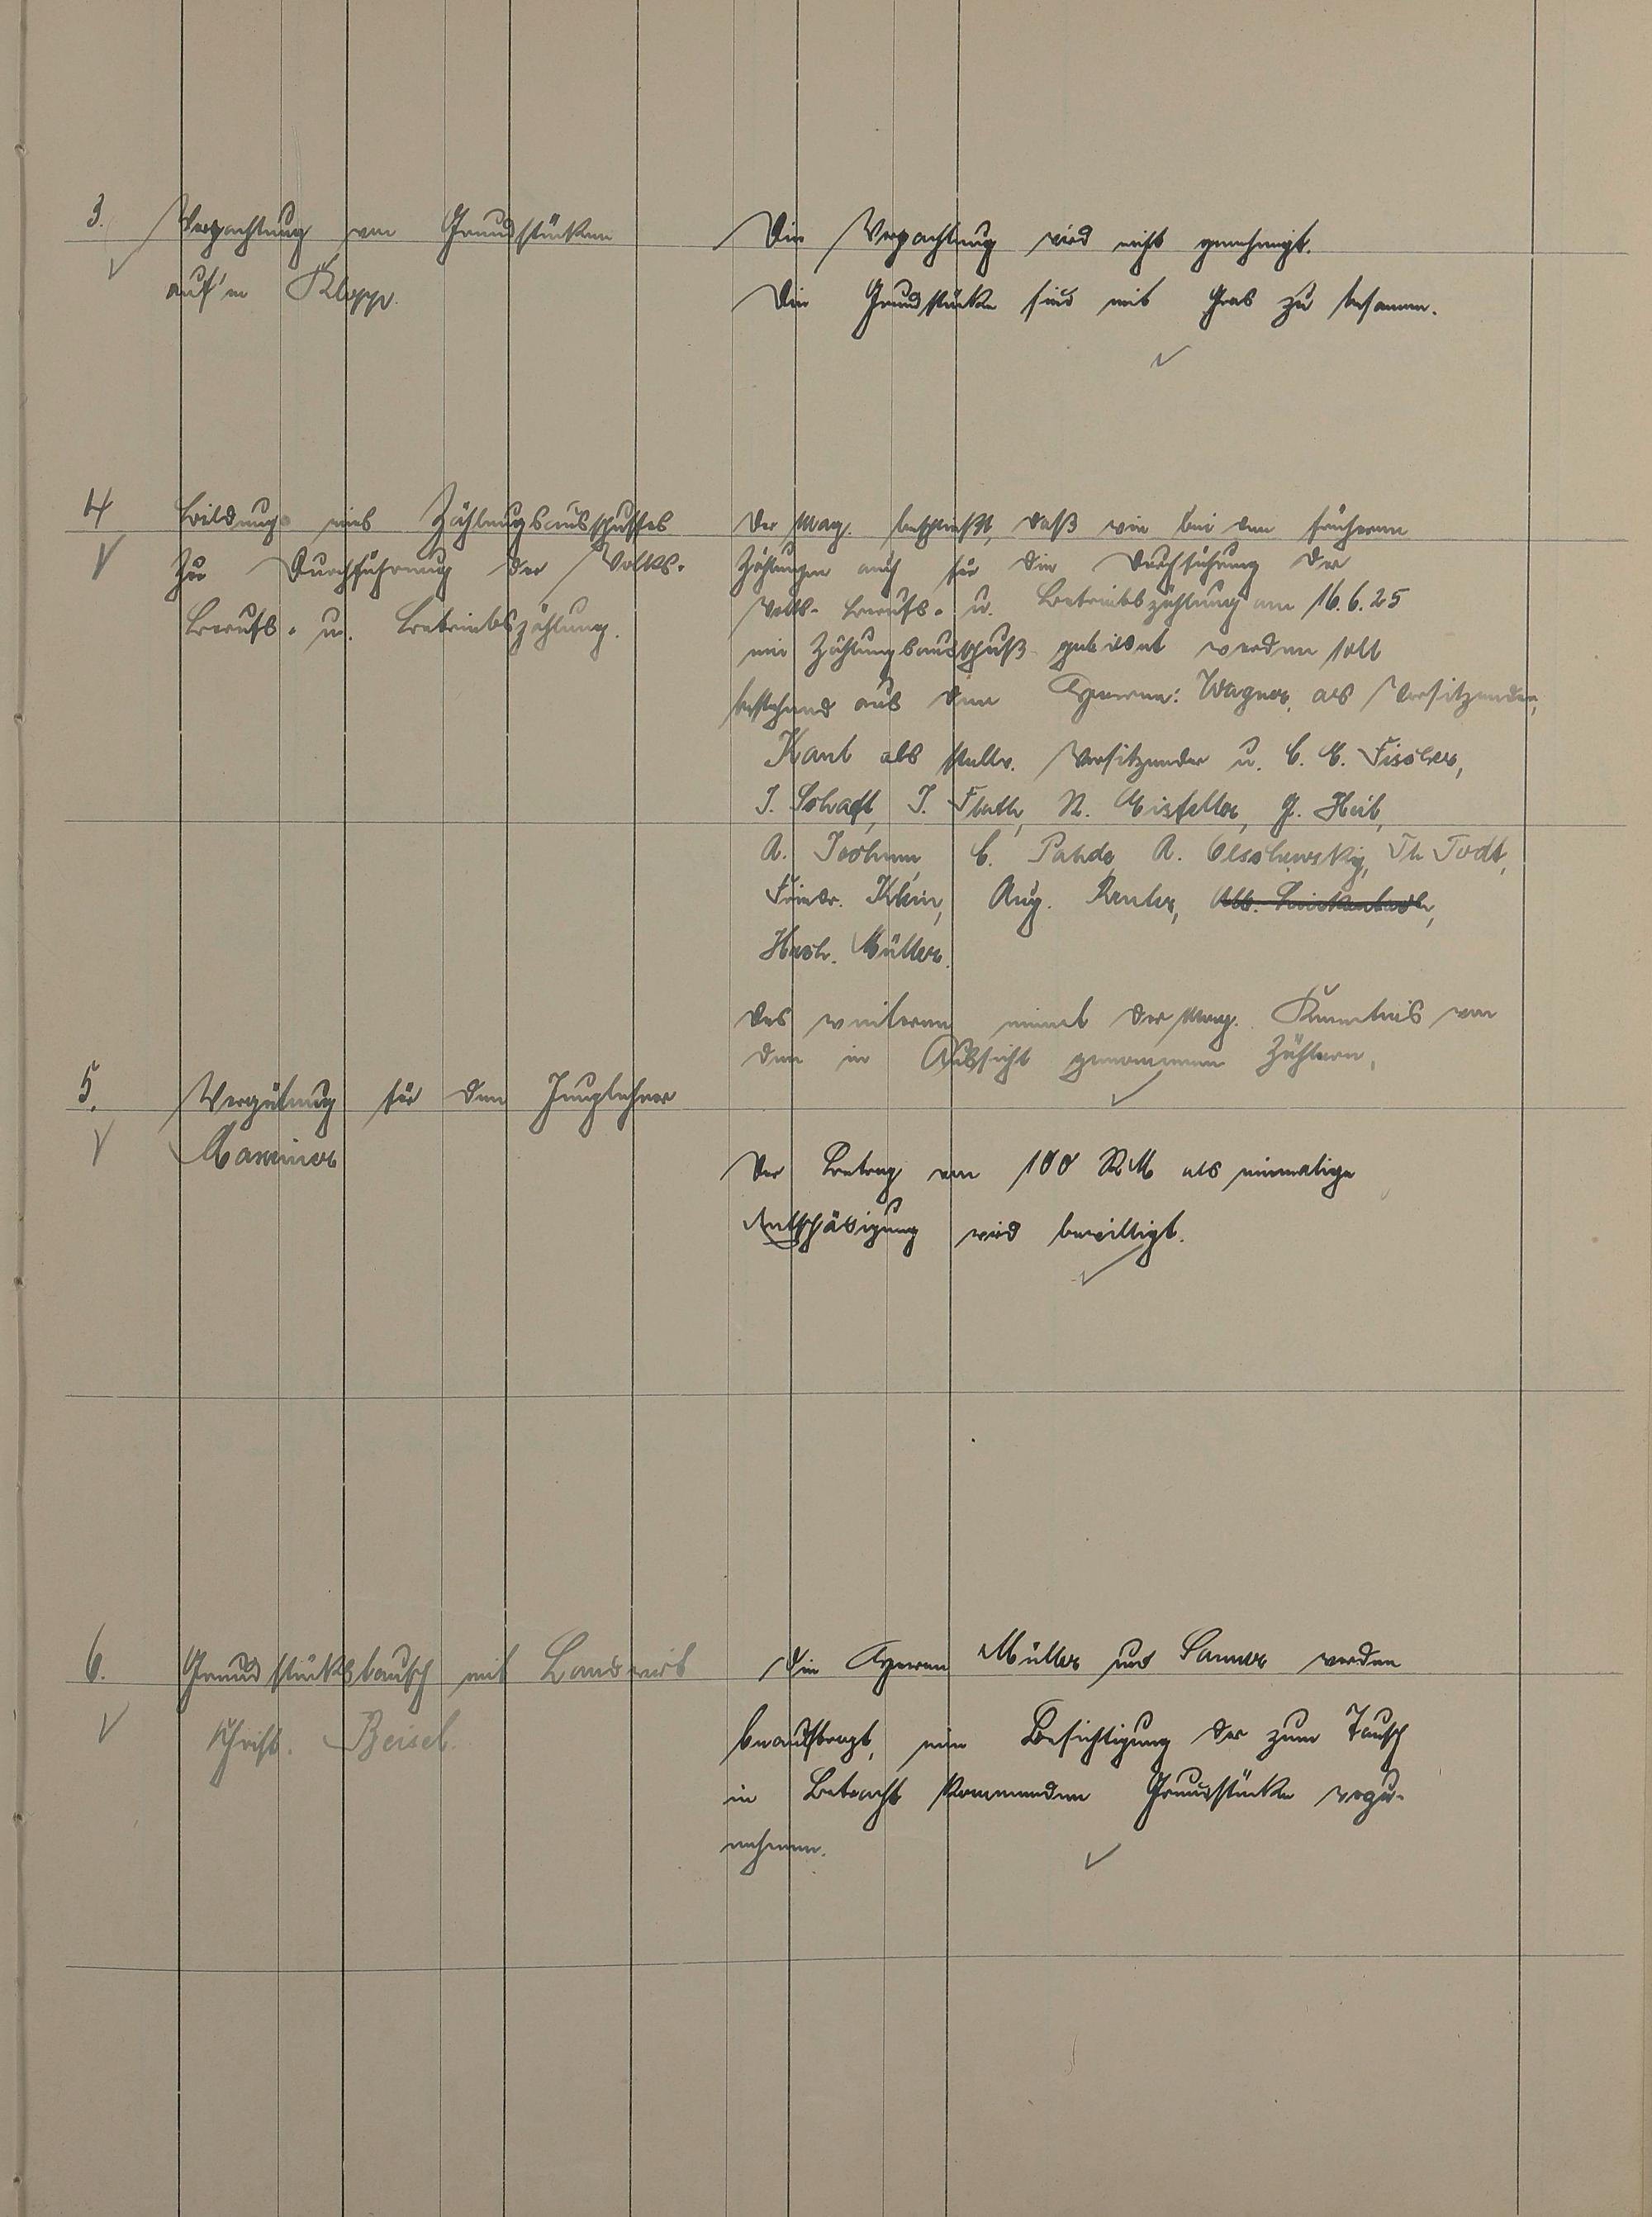 3. Verpachtung von Grundstücken
auf'm Klopp.
Die Verpachtung wird nicht genehmigt.
Die Grundstücke sind mit Gras zu besamen.
4 Bildung eines Zählungsausschusses
zur Durchführung der Volks-
Berufs- u. Betriebszählung.
Der Mag. beschließt, daß wie bei den früheren
Zählungen auch für die Durchführung der
Volks- Berufs- u. Betriebszählung am 16.6.25
ein Zählungsausschuß gebildet werden soll
bestehend aus den Herren: Wagner, als Vorsitzender,
Kant als stellv. Vorsitzender u. C. C. Fischer,
J. Schaft, J. Flath, N. Eisfeller, G. Heil,
A. Jochum, C. Pahde, A. Olschewsky, Th Todt,
Friedr. Klein, Aug. Reuter,
Hech. Müller.
Des weiteren nimmt der Mag. Kenntnis von
den in Aussicht genommenen Zählern.
5. Vergütung für den Junglehrer
Der Betrag von 100 RM als einmalige
Entschädigung wird bewilligt.
6. Grundstückstausch mit Landwirt
Christ. Beisel.
Die Herren Müller und Sanner werden
beauftragt, eine Besichtigung der zum Tausch
in Betracht kommenden Grundstücke vorzu-
nehmen.